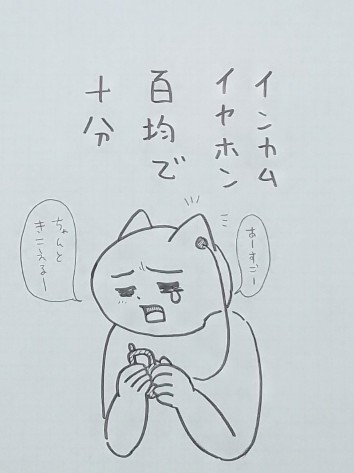 インカム
イヤホン
百均で
十分
あーすごー
ちゃんと
きこえるー